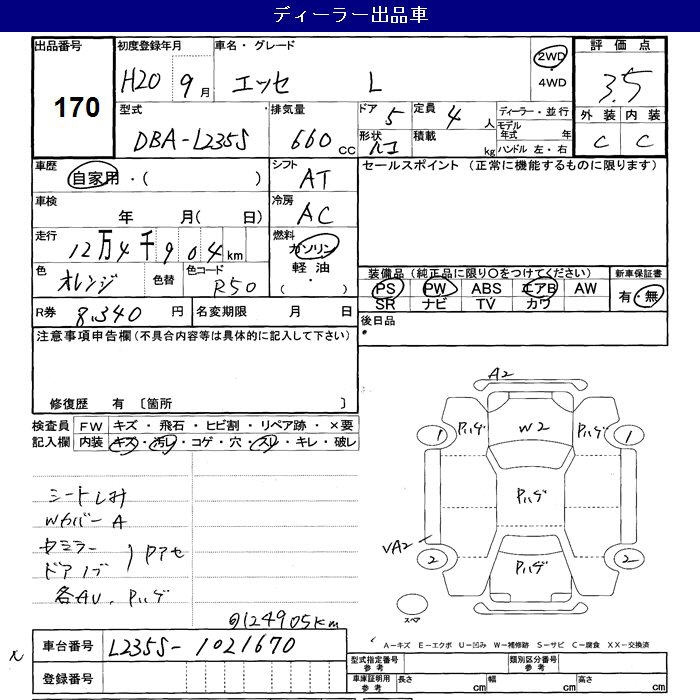 ディーラー出品車
出品番号 初度登録年月 車名・グレード 評価点
170 H20 9月 エッセ L 2WD 4WD 3.5
型式 排気量 ドア 5 定員 4人 ディーラー・並行 外装 内装
DBA-L235S 660cc 形状 積載 kg モデル年式 年 ハンドル 左・右 C C
車歴 自家用・( ) シフト AT セールスポイント(正常に機能するものに限ります)
車検 年 月( 日) 冷房 AC
走行 12万4千904km 燃料 ガソリン 軽油 ・( )
色 オレンジ 色替 色コード R50 装備品(純正品に限り○をつけてください) 新車保証書
PS PW ABS エアB AW 有・無
SR ナビ TV カワ
R券 8,340円 名変期限 月 日 後日品
注意事項申告欄(不具合内容等は具体的に記入して下さい)
修復歴 有 〔箇所 〕
検査員 FW キズ・飛石・ヒビ割・リペア跡・×要
記入欄 内装 キズ・汚レ・コゲ・穴・スレ・キレ・破レ
A2
1 Pハゲ W2 Pハゲ 1
Pハゲ
VA2 2 Pハゲ 2
スペア
シートしみ
Wカバー A
ドアノブ
各AU、Pハゲ
124905km
A-キズ E-エクボ U-凹み W-補修跡 S-サビ C-腐食 XX-交換済
車台番号 L235S-1021670 型式指定番号参考 類別区分番号参考
登録番号 車庫証明用参考 長さ cm 幅 cm 高さ cm